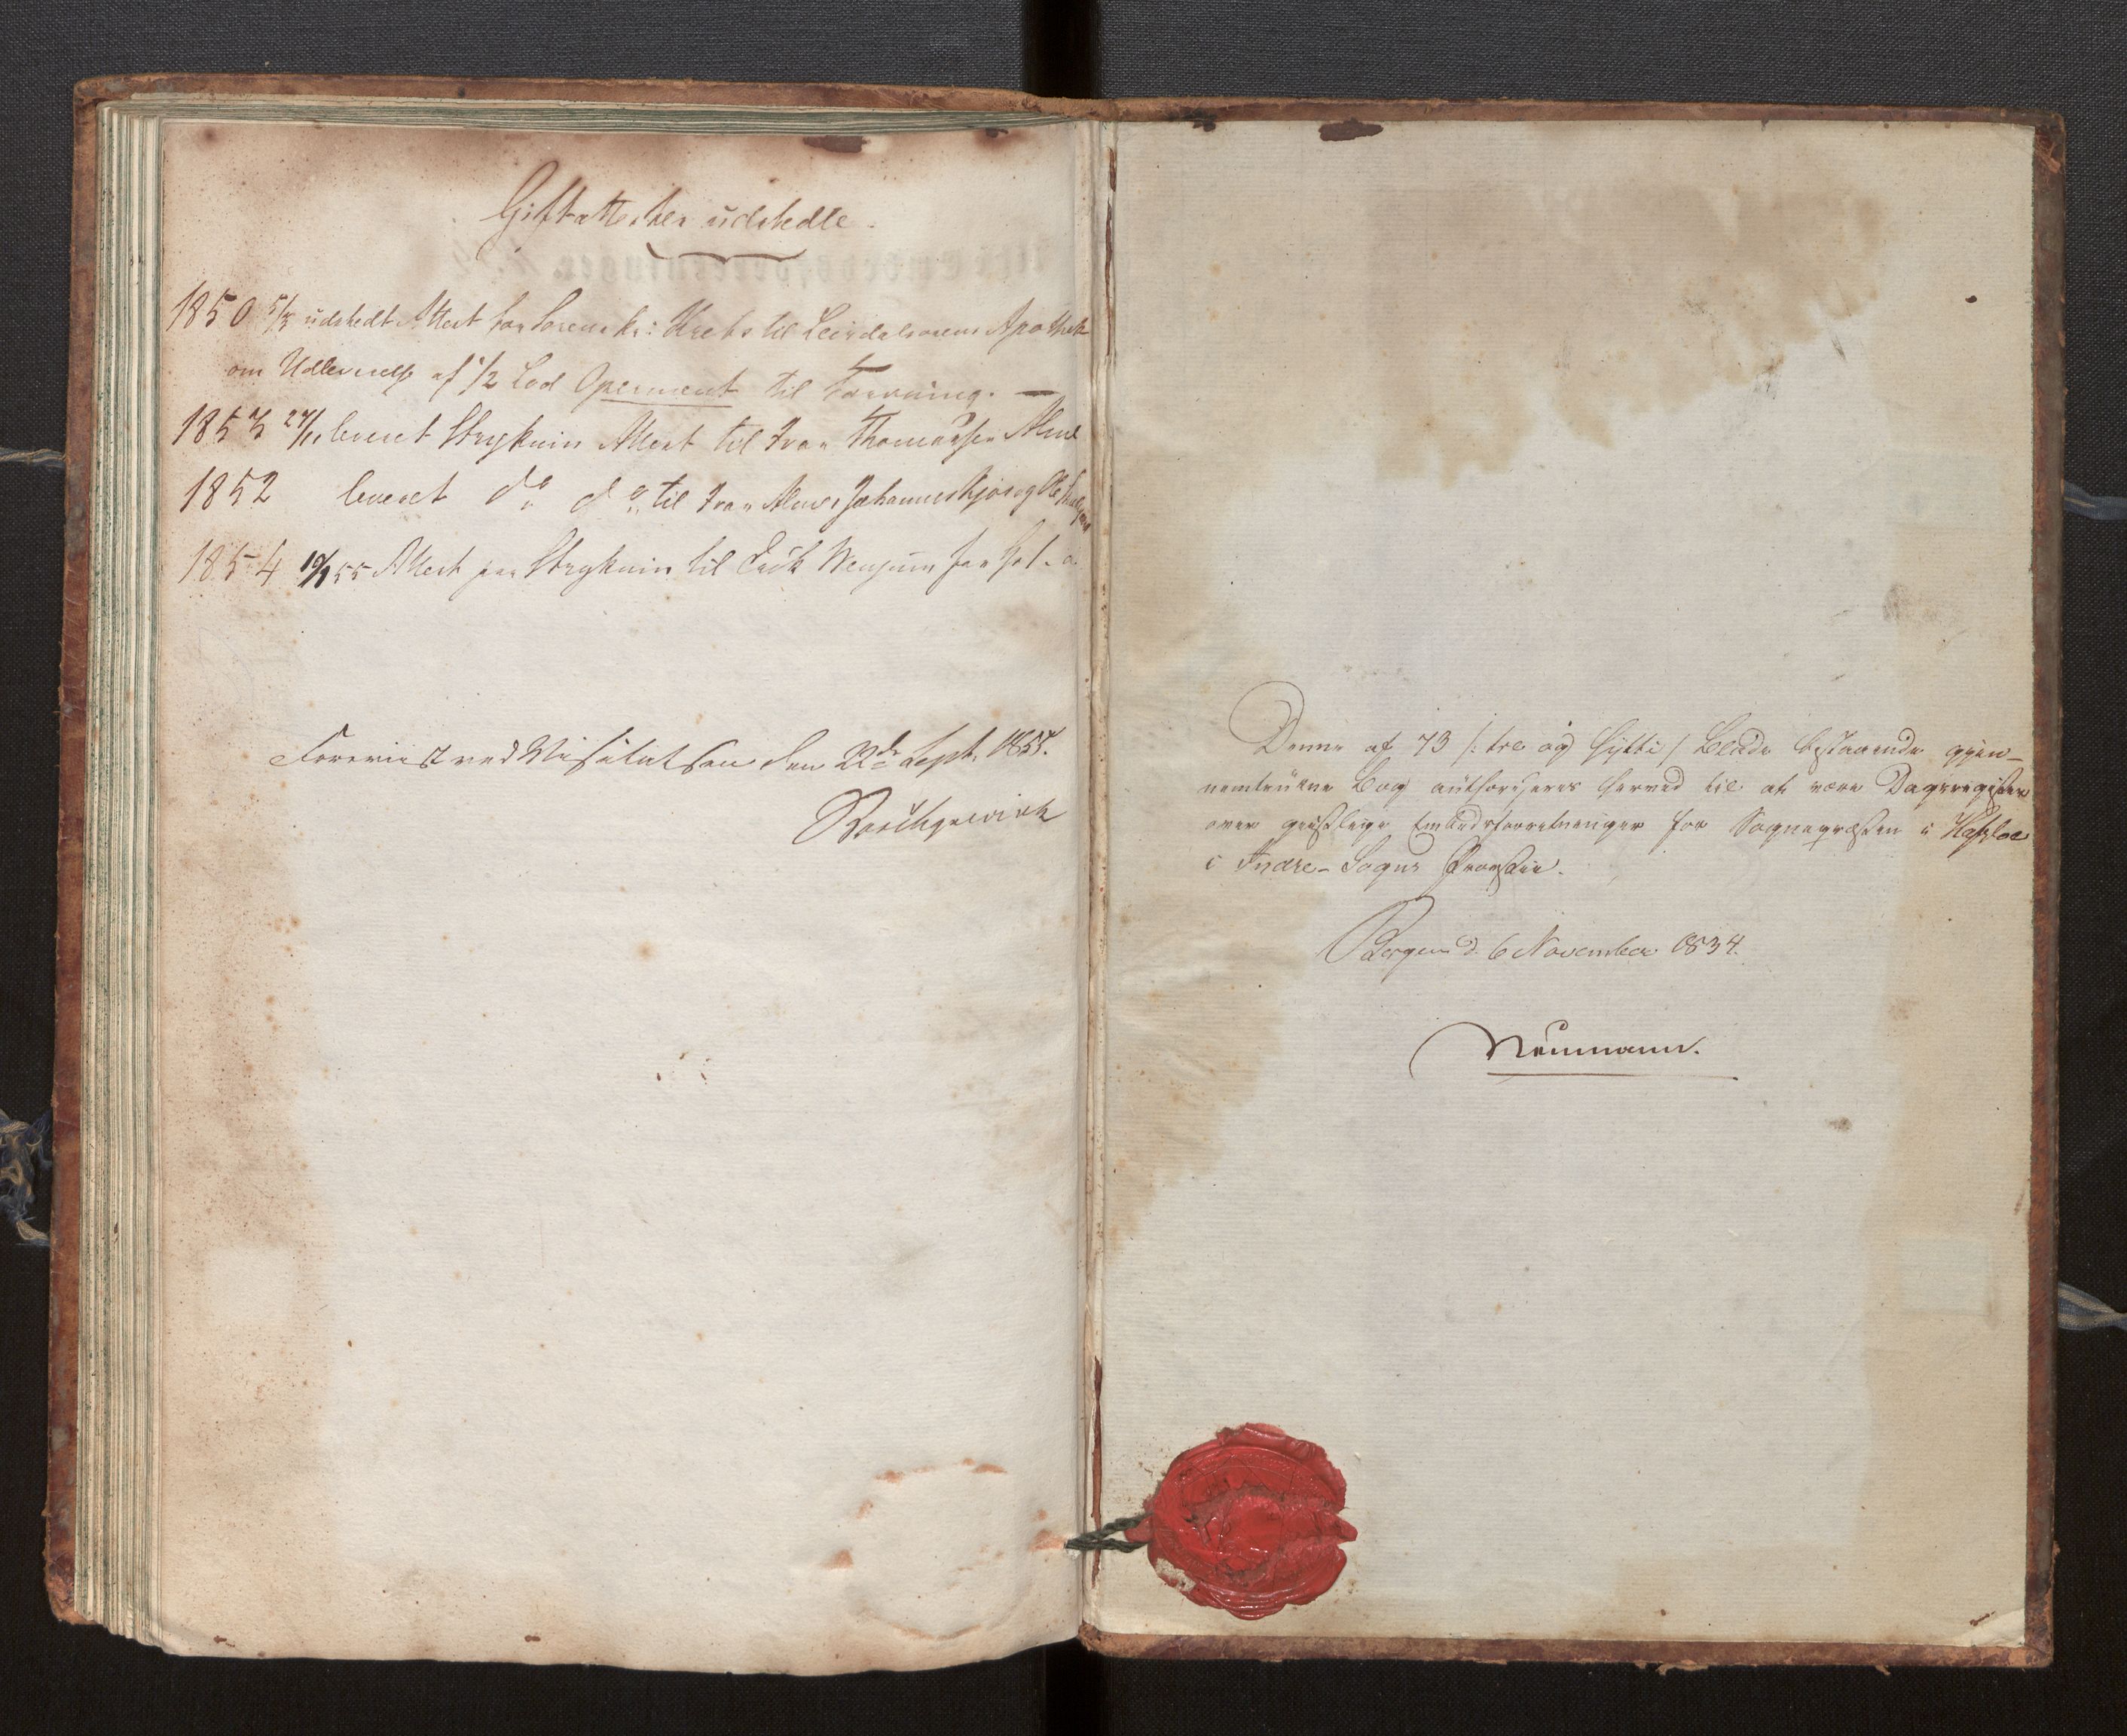 Giftattester udstedte.
1850 5/3 udstedt Attest for Sorensk: Krebs til Leirdalsørens Apothek
om Udleverelse af 1/2 Lod Operment til Farvning. —
1853 27/11 leveret Stryknin Attest til Ivar Thomassen Alme
1852 leveret do do til Ivar Alme, Johannes Kjos og Ole
1854 10/1 55 Attest paa Stryknin til Erik Venjum for
Foreviist ved Visitatsen den 22de Sept. 1855.
Denne af 73 /: tre og sytti / Blade bestaaende gjen-
nemtrukne Bog authoriseres herved til at være Dagsregister
over geistlige Embedsforretninger for Sognepræsten i Hafsloe
i Indre-Sogns Provstie.
Bergen d. 6 November 1834.
Neumann.